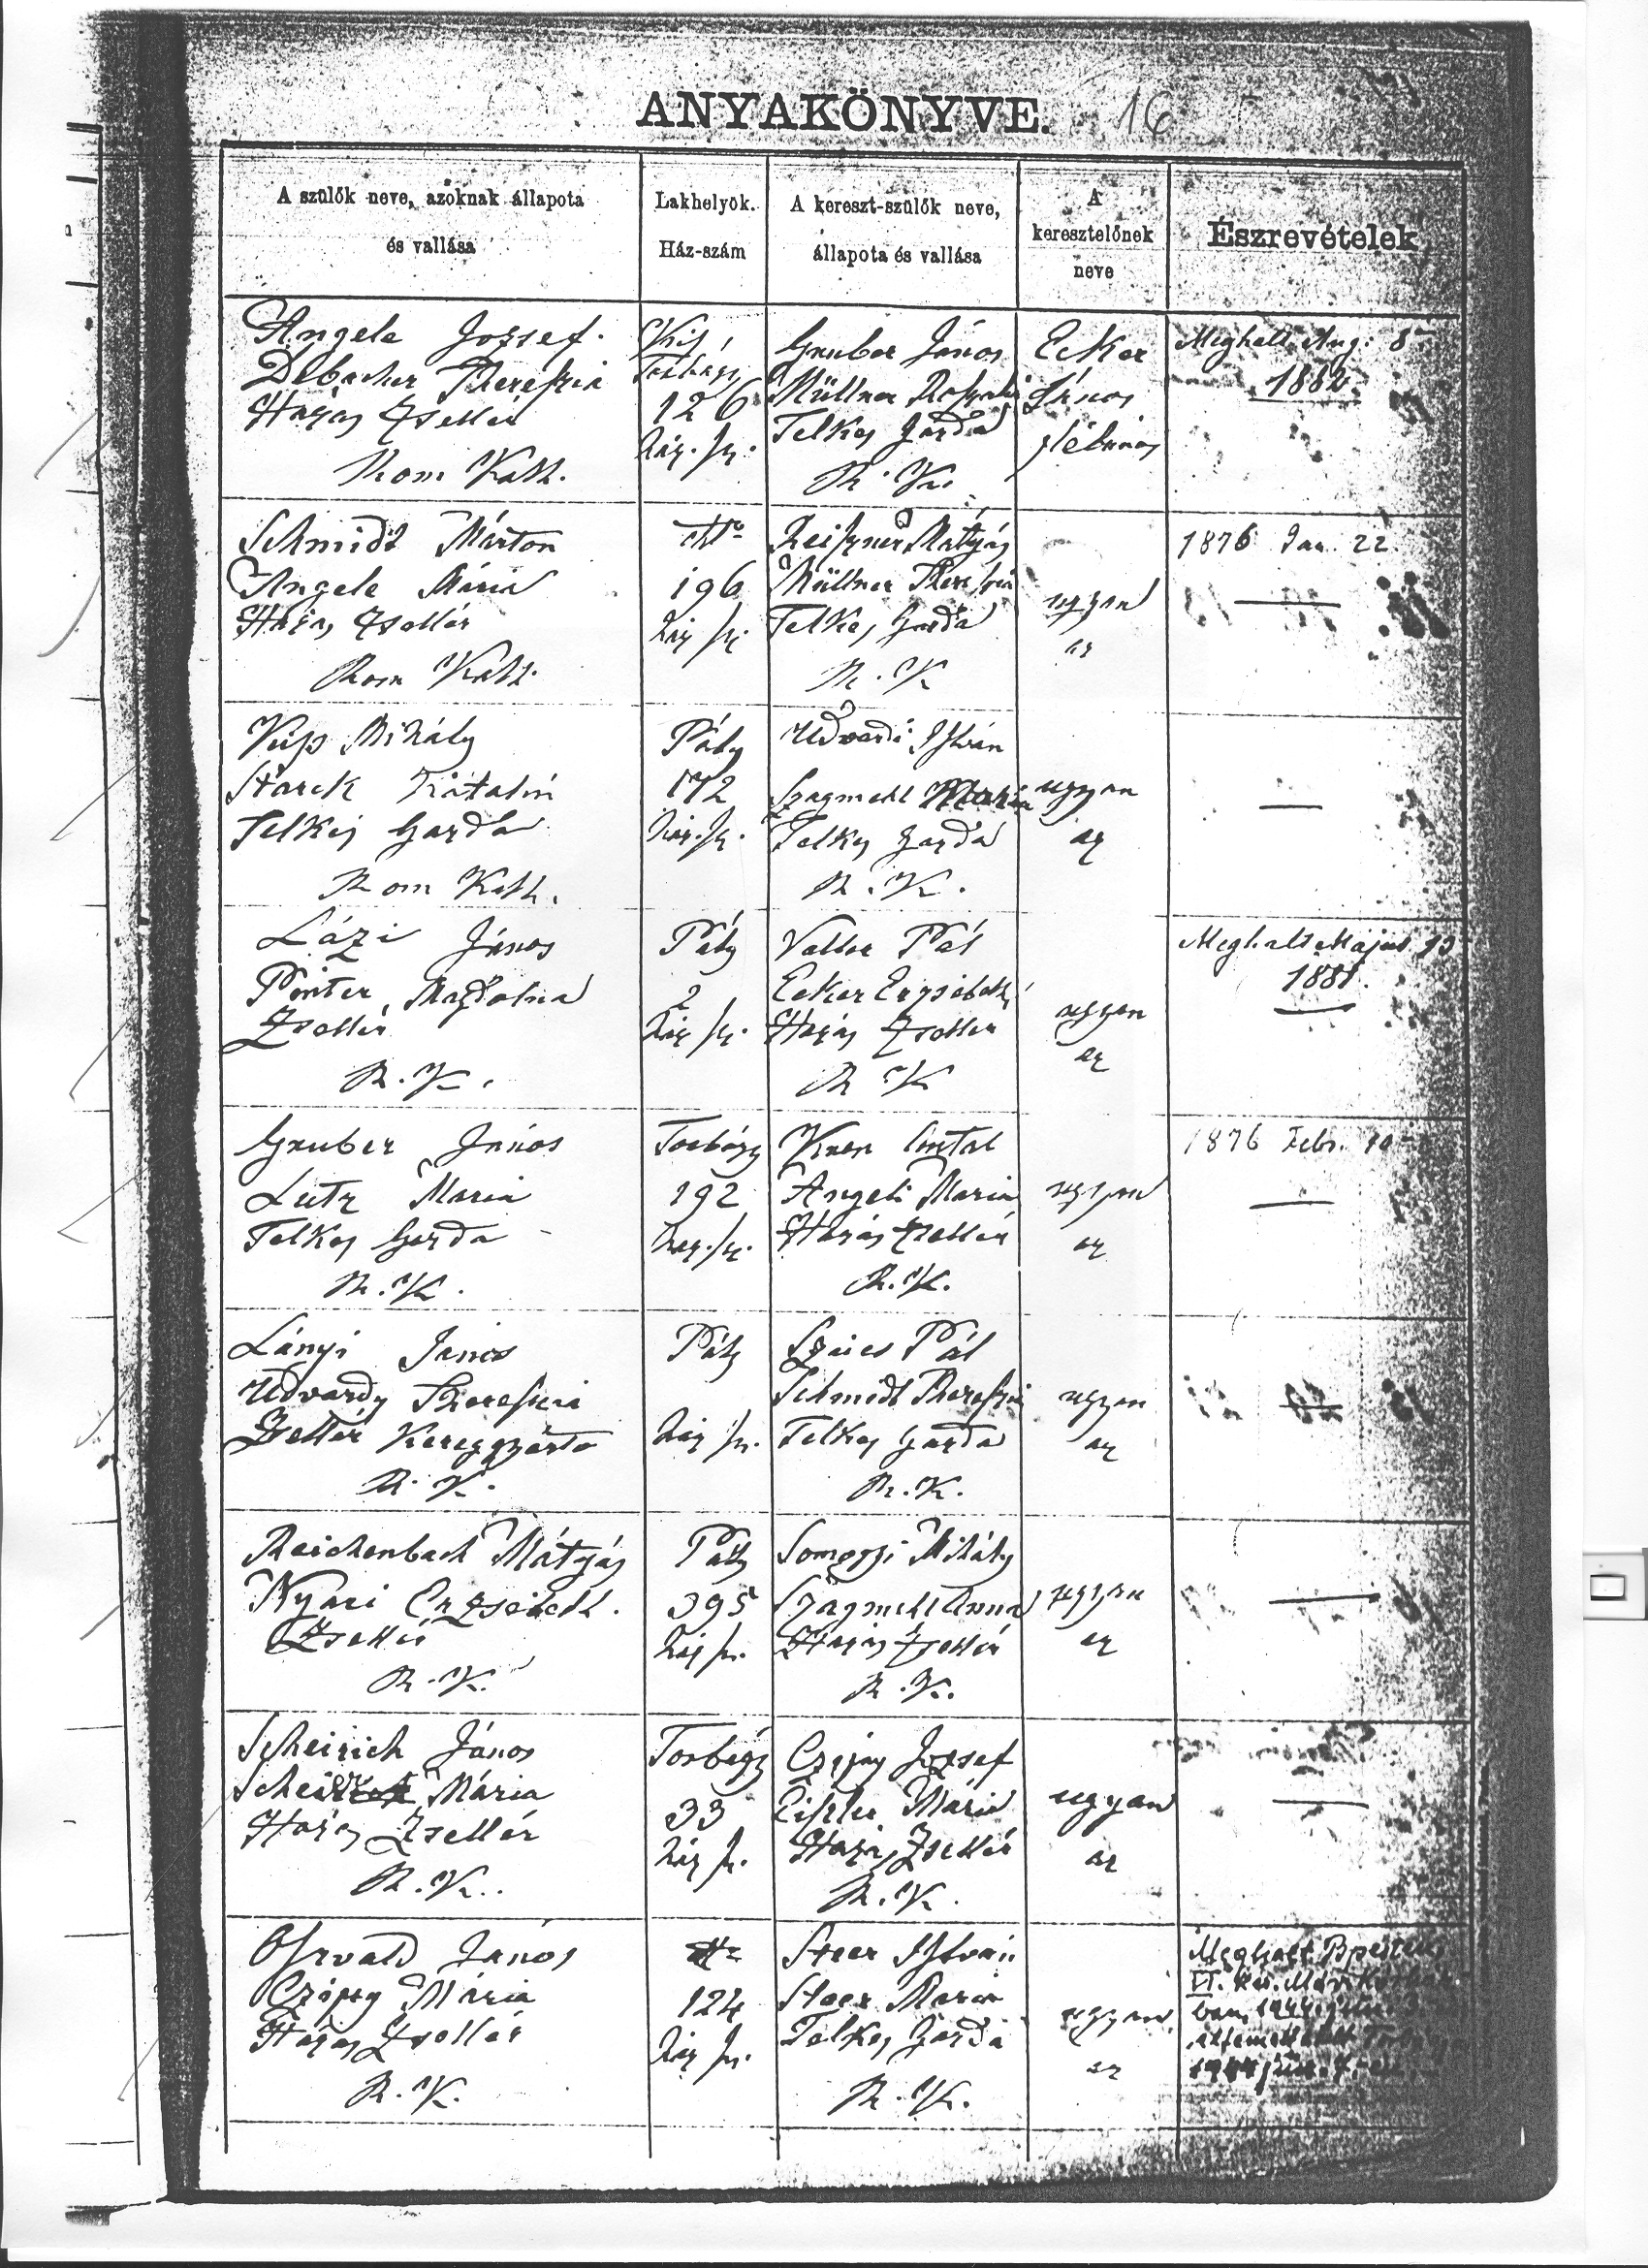 ANYAKÖNYVE. 16
A szülők neve, azoknak állapota
és vallása
Lakhelyök.
Ház-szám
A kereszt-szülők neve,
állapota és vallása
A
keresztelőnek
neve
Észrevételek
Angele Jozsef.
Debacher Thereszia
Házas Zsellér
Rom Kath.
Kis
Torbágy
126
ház. sz.
Gruber János
Müllner
Telkes Gazda
R. K.
Ecker
János
plébános
Meghalt Aug. 8
1882.
Schmidt Márton
Angele Mária
Házas Zsellér
Rom Kath.
196
ház sz.
Mátyás
Müllner Therészia
Telkes Gazda
R. K
ugyan
az
1876 Jan. 22.
Mihály
Starck Katalin
Telkes Gazda
Rom Kath.
Páty
172
ház. sz.
Udvardi István
Szagmehl
Telkes Gazda
R. K.
ugyan
az
Lázi János
Pinter Magdolna
Zsellér
R. K.
Páty
2
ház sz.
Pál
Ecker Erzsébeth
Házas Zsellér
R K
ugyan
az
Meghalt Május
1881.
Gruber János
Lutz Maria
Telkes Gazda
R. K.
Torbágy
192
haz. sz.
Angeli Maria
Házas Zsellér
R. K.
ugyan
az
1876 Febr. 10
Lányi János
Udvardy Thereszia
Zsellér Kerekgyártó
R. K.
Páty
ház sz.
Szücs Pál
Schmidt Thereszia
Telkes Gazda
R. K.
ugyan
az
Reichenbach Mátyás
Nyári Erzsébeth.
Zsellér
R. K.
Páty
395
ház sz.
Somogyi Mihály
Szagmehl Anna
Házas Zsellér
R. K.
ugyan
az
Scheirich János
Mária
Házas Zsellér
R. K.
Torbágy
33
ház sz.
József
Mária
Házas Zsellér
R. K.
ugyan
az
Oszvald János
Mária
Házas Zsellér
R. K.
124
ház sz.
Steer István
Steer Maria
Telkes Gazda
R. K.
ugyan
az
Meghalt Bpesten
VI. ker.